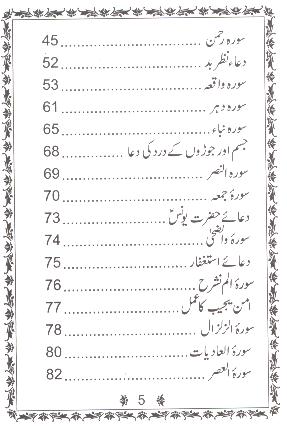 سورہ رحمٰن ........................ 45
دعاء نظر بد ........................ 52
سورہ واقعہ ........................ 53
سورہ دہر ........................ 61
سورہ نباء ........................ 65
جسم اور جوڑوں کے درد کی دعا ........ 68
سورہ النصر ........................ 69
سورۂ جمعہ ........................ 70
دعائے حضرت یونسؑ ........................ 73
سورۂ والضحٰی ........................ 74
دعائے استغفار ........................ 75
سورۂ الم نشرح ........................ 76
امن یجیب کا عمل ........................ 77
سورۃ الزلزال ........................ 78
سورۃ العادیات ........................ 80
سورۃ العصر ........................ 82
5